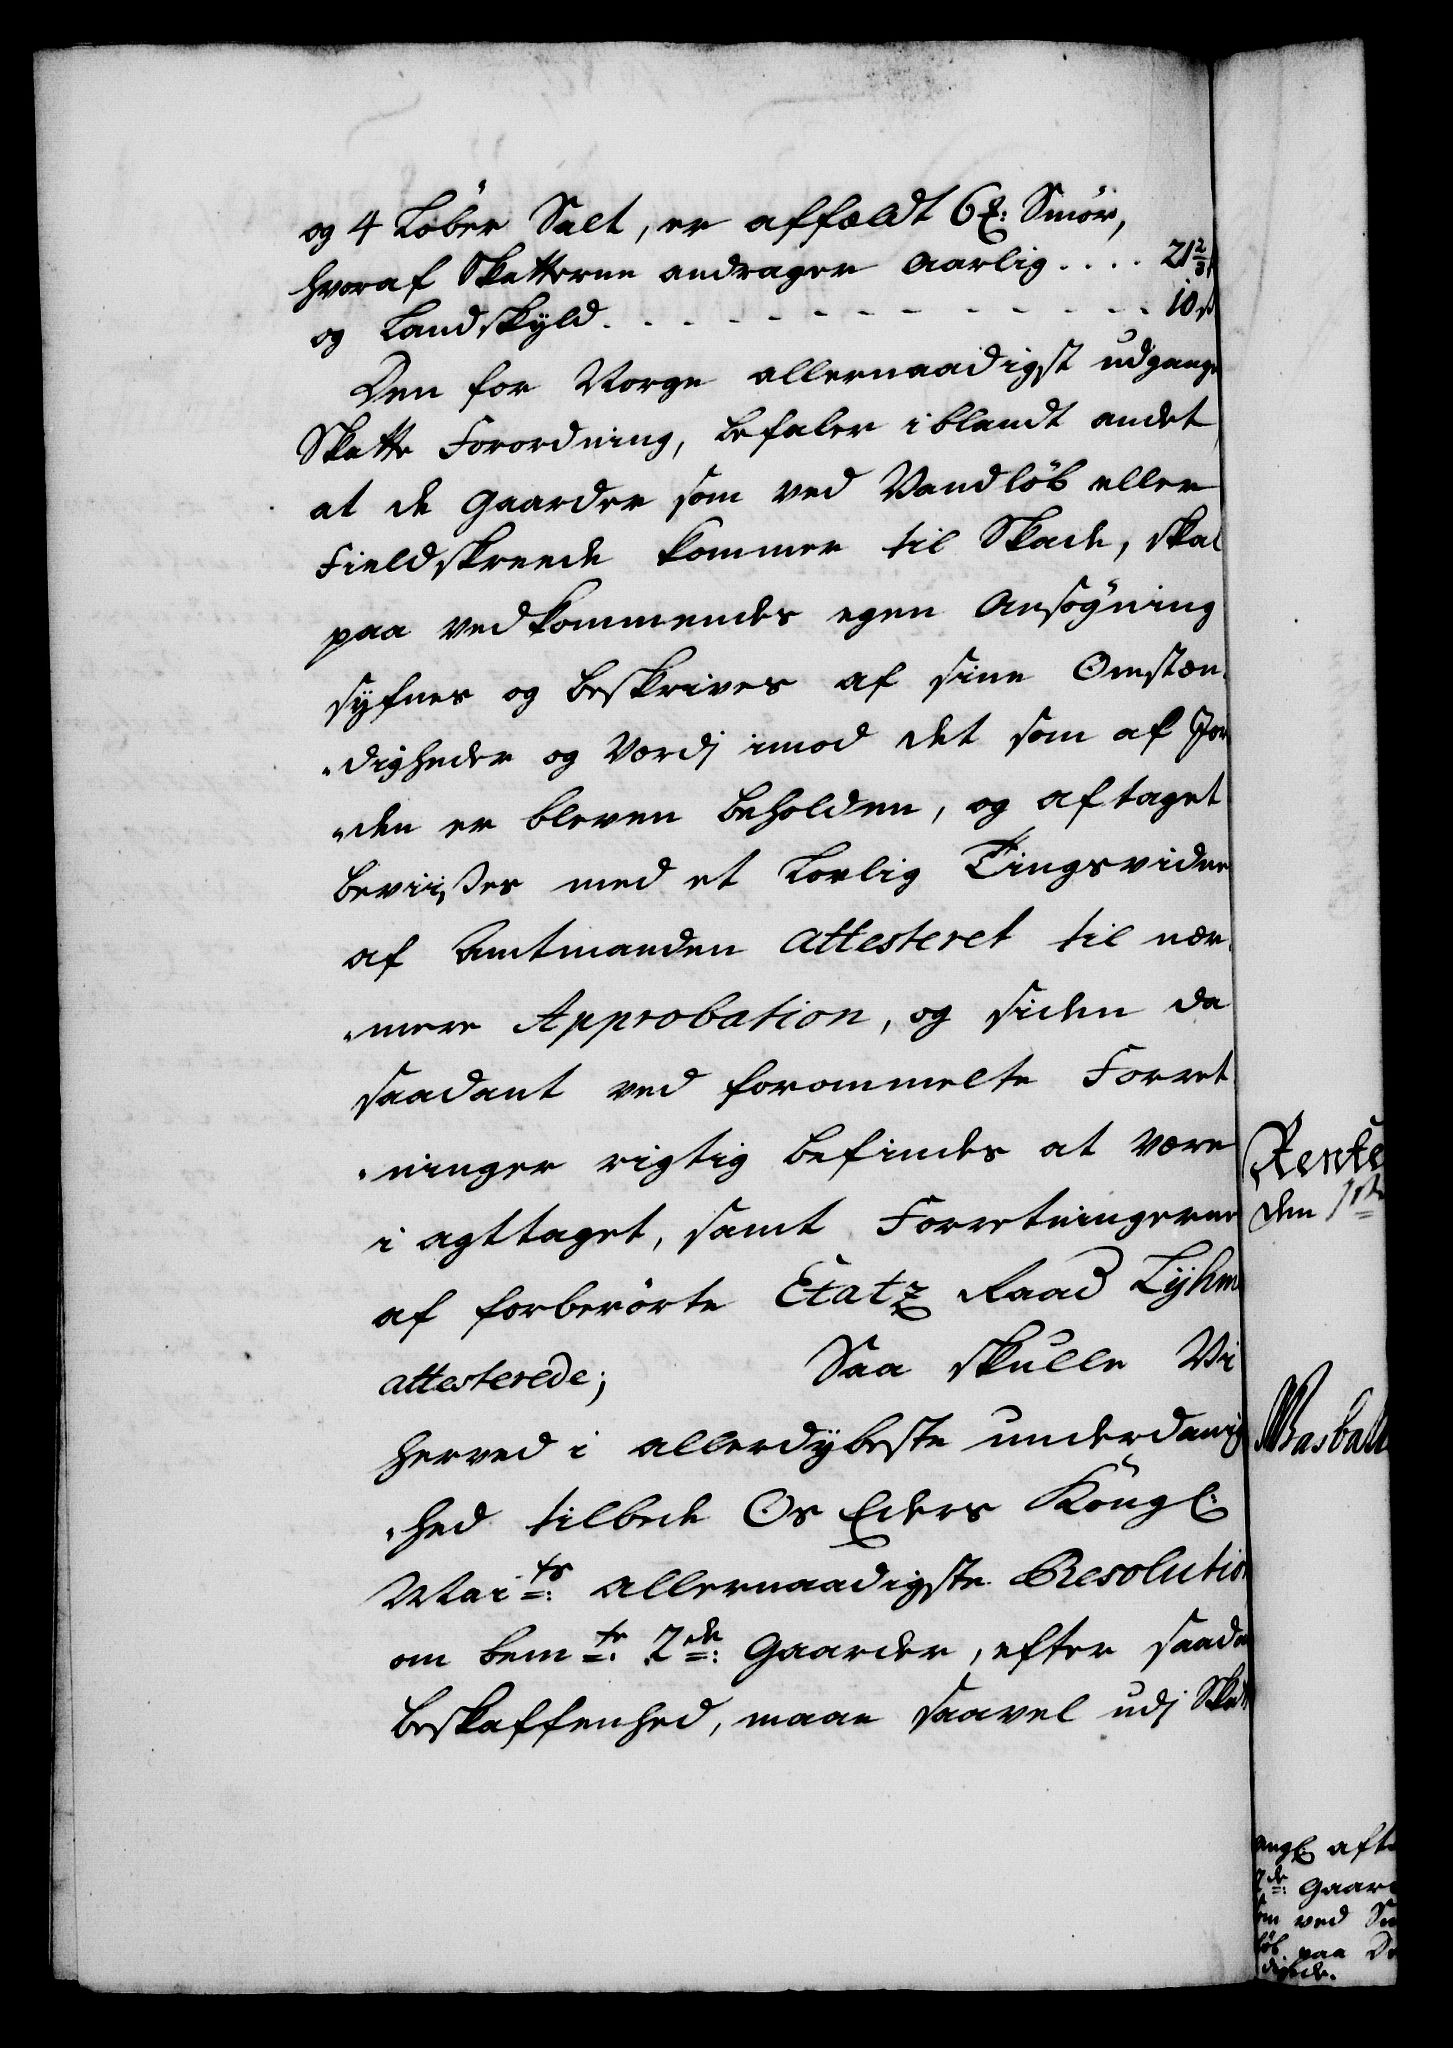 og 4 Löber Salt, er affældt 6 ℔: Smör,
hvoraf Skatterne andrager aarlig .... 21⅔ ß
og Landskyld. - - - - - - - - - - - 10 ß
Den for Norge allernaadigst udgangne
Skatte Forordning, befaler iblandt andet,
at de Gaarder som ved Vandlöb eller
Fieldskreede kommer til Skade, skal
paa vedkommendes egen Ansögning
syfnes og beskrives af sine Omstæn-
„digheder og Værdj imod det som af Jor-
„den er bleven beholden, og aftaget
beviises med et Lovlig Tingsvidne
af Amtmanden attesteret til nær-
„mere Approbation, og siden da
saadant ved forommelte Forret-
„ninger rigtig befindes at være
i agttaget, samt Forretningerne
af forberörte Etatz Raad Lyhm
attesterede; Saa skulle Vi
herved i allerdybeste underdanig-
„hed tilbede Os Eders Köngl:
Mai:ts allernaadigste Resolution
om bem:te 2:de Gaarder, efter saadan
beskaffenhed, maae saavel udj Skatt
Rente
den 1ste
ang: aft
2:de Gaard
som ved
löb paa
digede.